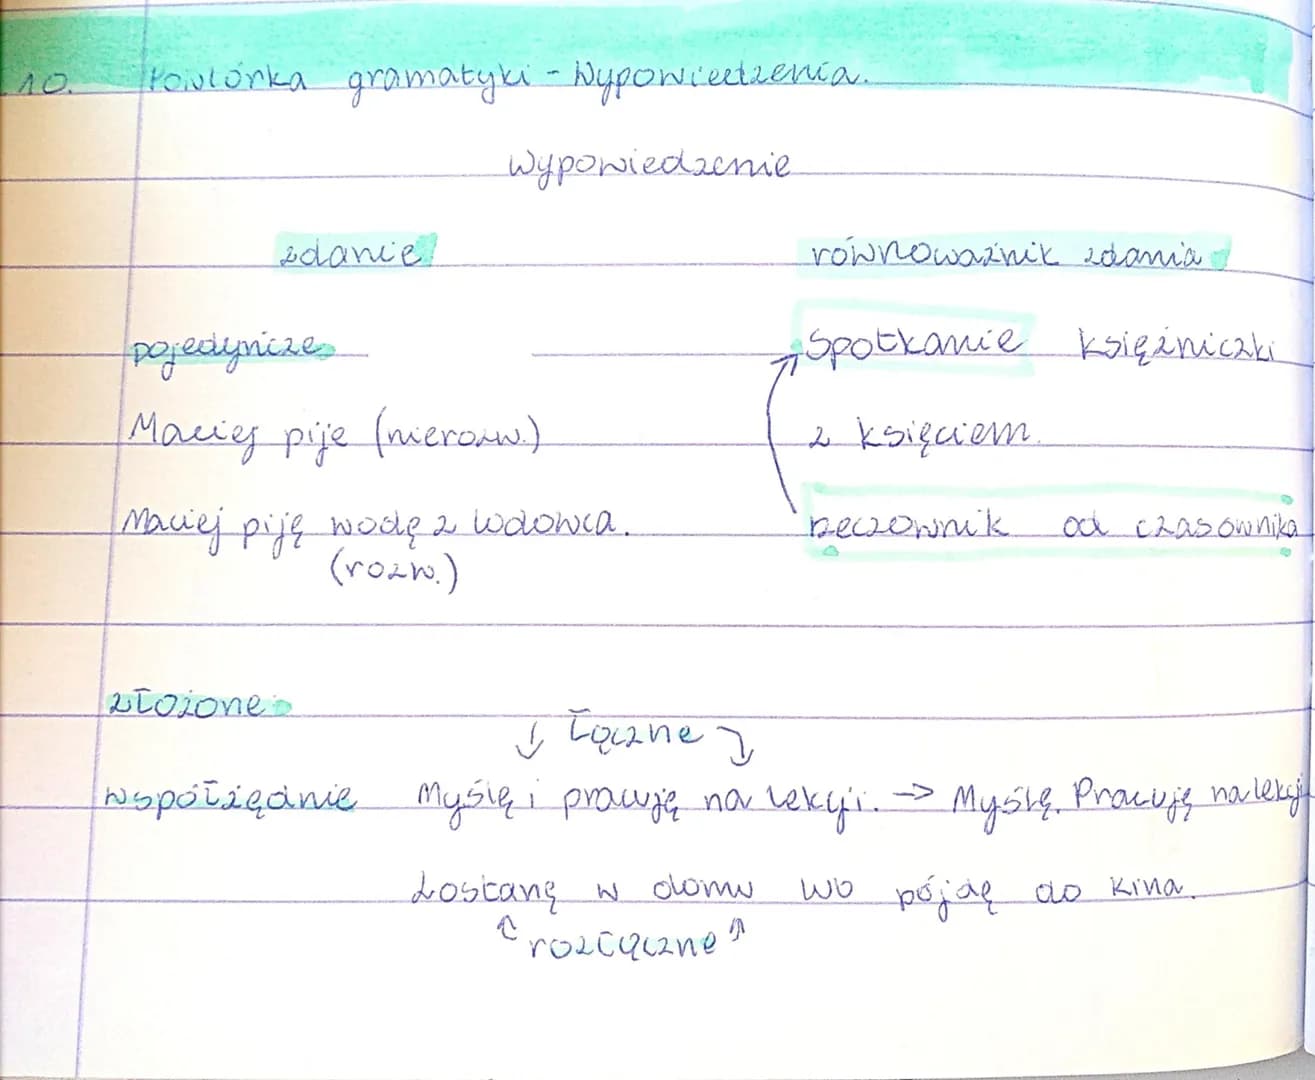 10. Powtórka gramatyki - Wypowiedzenia.
Wypowiedzenie
zdanie równoważnik zdania
pojedyncze Spotkanie księżniczki
Maciej pije (nierozw.) z księciem.
Maciej piję wodę z lodowca. rzeczownik od czasownika
(rozw.)
złożone
↓ Łączne ↓
współrzędnie Myślę i pracuję na lekcji. -> Myślę. Pracuję na lekcji
Zostanę w domu lub pójdę do kina.
↑ rozłączne ↑